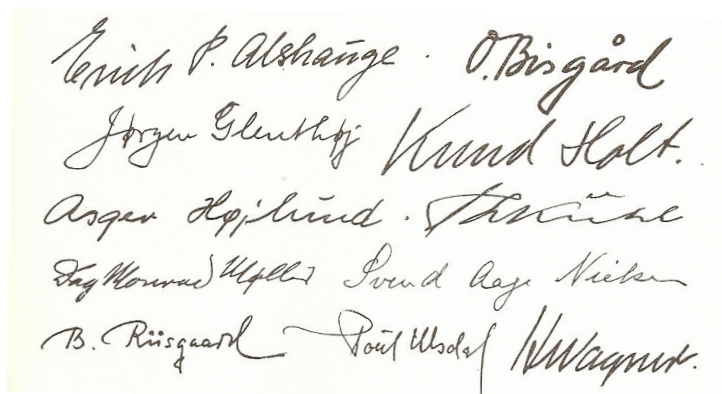 Erich P. Alshauge. O. Bisgård
Jørgen Glenthøj Knud Holt.
Asger Højlund. Th. Kühl
Dag Monrad Møller Svend Aage Nielsen
B. Riisgaard Poul Ulsdal H Wagner.